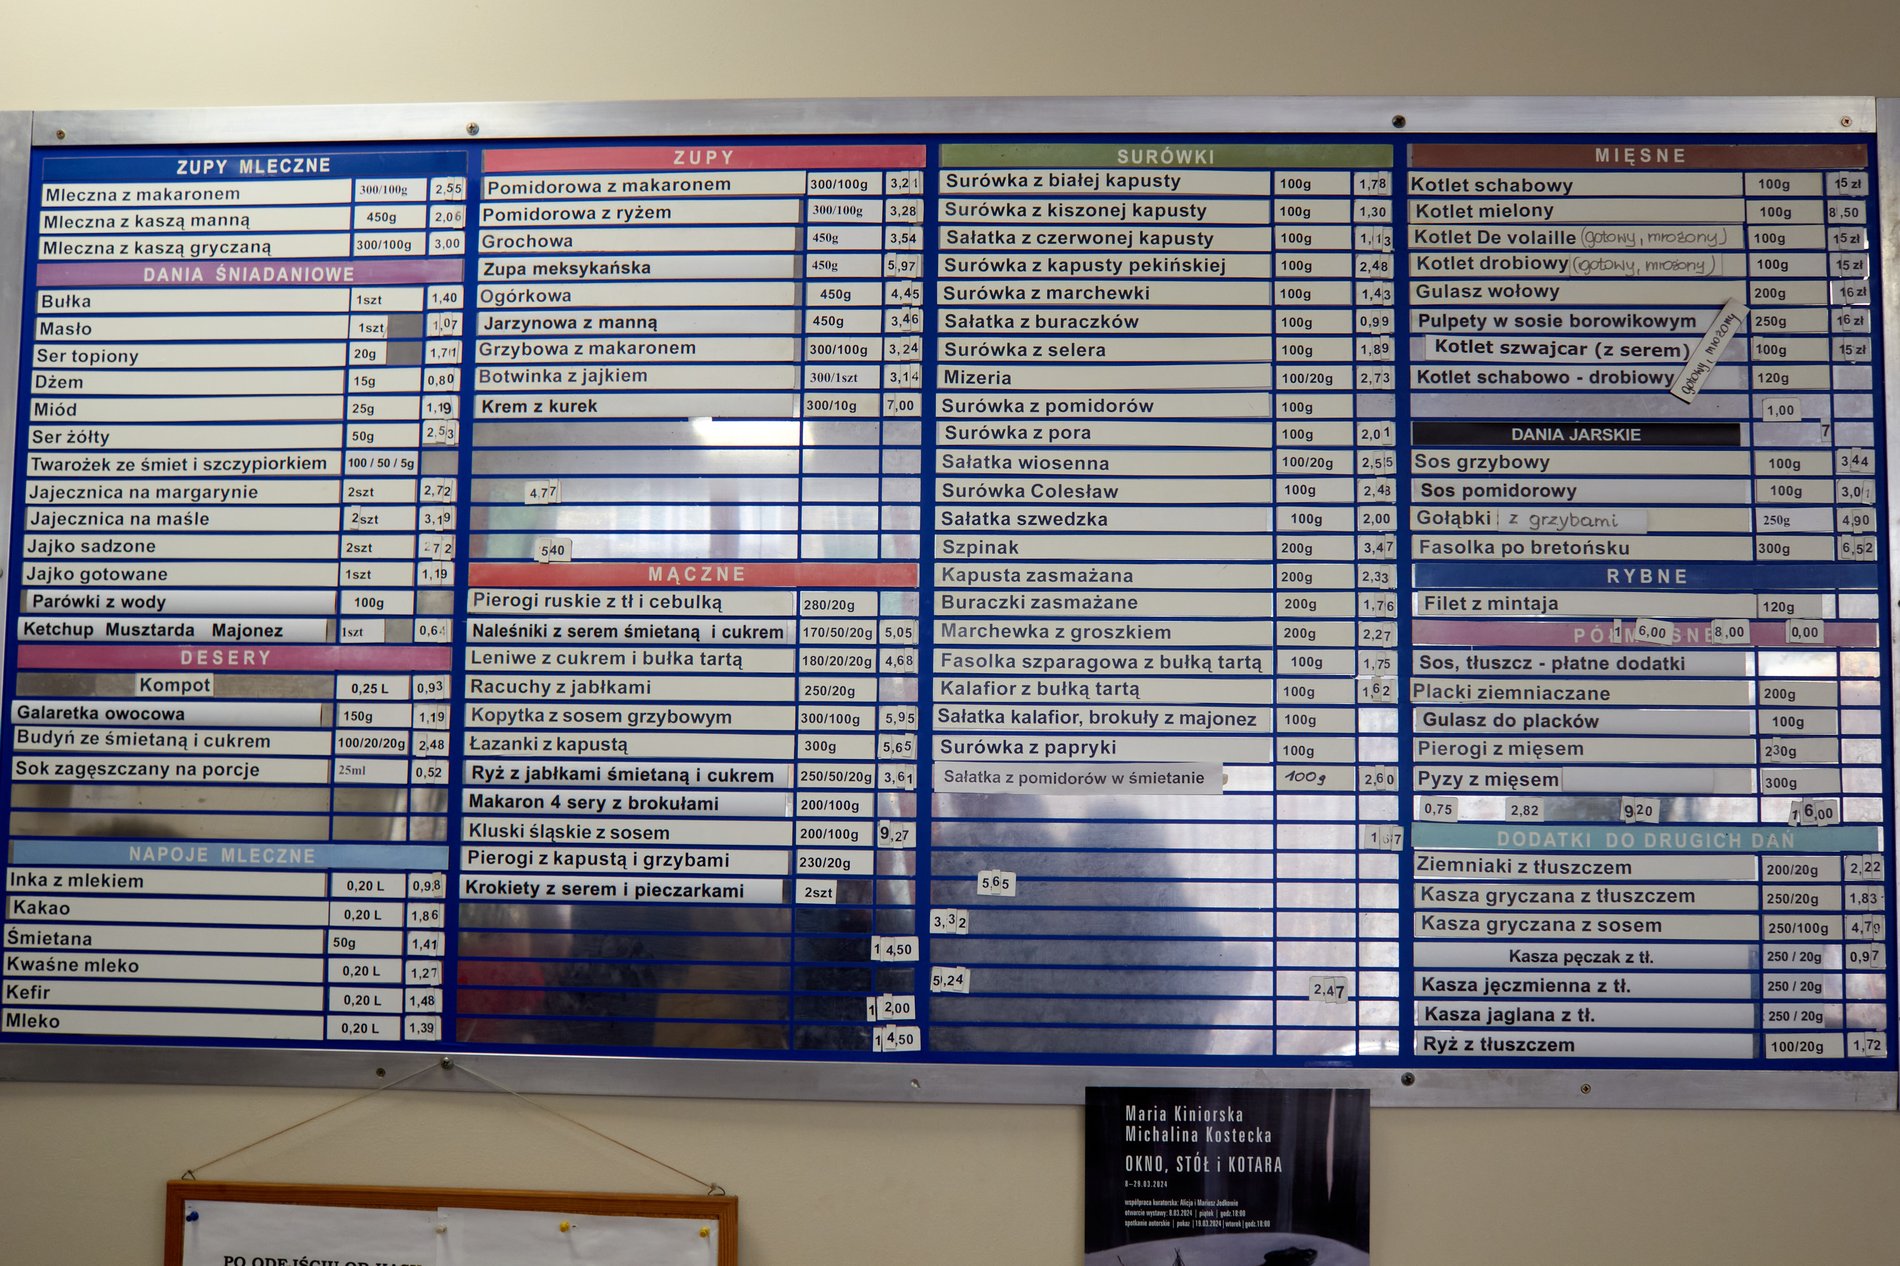 ZUPY MLECZNE
Mleczna z makaronem 300/100g 2,55
Mleczna z kaszą manną 450g 2,06
Mleczna z kaszą gryczaną 300/100g 3,00
DANIA ŚNIADANIOWE
Bułka 1szt 1,40
Masło 1szt 1,07
Ser topiony 20g 1,71
Dżem 15g 0,80
Miód 25g 1,19
Ser żółty 50g 2,53
Twarożek ze śmiet i szczypiorkiem 100 / 50 / 5g
Jajecznica na margarynie 2szt 2,72
Jajecznica na maśle 2szt 3,19
Jajko sadzone 2szt 2,72
Jajko gotowane 1szt 1,19
Parówki z wody 100g
Ketchup Musztarda Majonez 1szt 0,64
DESERY
Kompot 0,25 L 0,93
Galaretka owocowa 150g 1,19
Budyń ze śmietaną i cukrem 100/20/20g 2,48
Sok zagęszczany na porcje 25ml 0,52
NAPOJE MLECZNE
Inka z mlekiem 0,20 L 0,98
Kakao 0,20 L 1,86
Śmietana 50g 1,41
Kwaśne mleko 0,20 L 1,27
Kefir 0,20 L 1,48
Mleko 0,20 L 1,39
ZUPY
Pomidorowa z makaronem 300/100g 3,21
Pomidorowa z ryżem 300/100g 3,28
Grochowa 450g 3,54
Zupa meksykańska 450g 5,97
Ogórkowa 450g 4,45
Jarzynowa z manną 450g 3,46
Grzybowa z makaronem 300/100g 3,24
Botwinka z jajkiem 300/1szt 3,14
Krem z kurek 300/10g 7,00
4,77
540
MĄCZNE
Pierogi ruskie z tł i cebulką 280/20g
Naleśniki z serem śmietaną i cukrem 170/50/20g 5,05
Leniwe z cukrem i bułka tartą 180/20/20g 4,68
Racuchy z jabłkami 250/20g
Kopytka z sosem grzybowym 300/100g 5,95
Łazanki z kapustą 300g 5,65
Ryż z jabłkami śmietaną i cukrem 250/50/20g 3,61
Makaron 4 sery z brokułami 200/100g
Kluski śląskie z sosem 200/100g 9,27
Pierogi z kapustą i grzybami 230/20g
Krokiety z serem i pieczarkami 2szt
14,50
12,00
14,50
SURÓWKI
Surówka z białej kapusty 100g 1,78
Surówka z kiszonej kapusty 100g 1,30
Sałatka z czerwonej kapusty 100g 1,13
Surówka z kapusty pekińskiej 100g 2,48
Surówka z marchewki 100g 1,43
Sałatka z buraczków 100g 0,99
Surówka z selera 100g 1,89
Mizeria 100/20g 2,73
Surówka z pomidorów 100g
Surówka z pora 100g 2,01
Sałatka wiosenna 100/20g 2,55
Surówka Colesław 100g 2,48
Sałatka szwedzka 100g 2,00
Szpinak 200g 3,47
Kapusta zasmażana 200g 2,33
Buraczki zasmażane 200g 1,76
Marchewka z groszkiem 200g 2,27
Fasolka szparagowa z bułką tartą 100g 1,75
Kalafior z bułką tartą 100g 1,62
Sałatka kalafior, brokuły z majonez 100g
Surówka z papryki 100g
Sałatka z pomidorów w śmietanie 100g 2,60
1,67
5,65
3,32
5,24
2,47
MIĘSNE
Kotlet schabowy 100g 15 zł
Kotlet mielony 100g 8,50
Kotlet De volaille (gotowy, mrożony) 100g 15 zł
Kotlet drobiowy (gotowy, mrożony) 100g 15 zł
Gulasz wołowy 200g 16 zł
Pulpety w sosie borowikowym 250g 16 zł
Kotlet szwajcar (z serem) 100g 15 zł
Kotlet schabowo - drobiowy 120g
gotowy, mrożony
1,00
DANIA JARSKIE 7
Sos grzybowy 100g 3,44
Sos pomidorowy 100g 3,01
Gołąbki z grzybami 250g 4,90
Fasolka po bretońsku 300g 6,52
RYBNE
Filet z mintaja 120g
PÓŁMIĘSNE 1 6,00 8,00 0,00
Sos, tłuszcz - płatne dodatki
Placki ziemniaczane 200g
Gulasz do placków 100g
Pierogi z mięsem 230g
Pyzy z mięsem 300g
0,75 2,82 9,20 16,00
DODATKI DO DRUGICH DAŃ
Ziemniaki z tłuszczem 200/20g 2,22
Kasza gryczana z tłuszczem 250/20g 1,83
Kasza gryczana z sosem 250/100g 4,79
Kasza pęczak z tł. 250 / 20g 0,97
Kasza jęczmienna z tł. 250 / 20g
Kasza jaglana z tł. 250 / 20g
Ryż z tłuszczem 100/20g 1,72
Maria Kiniorska
Michalina Kostecka
OKNO, STÓŁ i KOTARA
8–29.03.2024
współpraca kuratorska: Alicja i Mariusz Jodkowie
otwarcie wystawy: 8.03.2024 | piątek | godz.18:00
spotkanie autorskie | pokaz | 19.03.2024 | wtorek | godz.18:00
PO ODEJŚCIU OD KASY